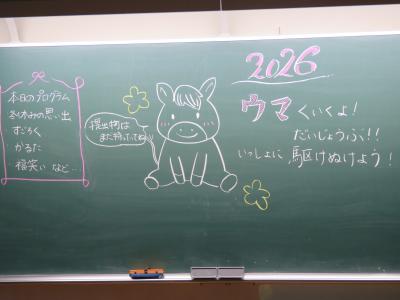 本日のプログラム
冬休みの思い出
すごろく
かるた
福笑い など…
提出物は
まだ持っててね
2026
ウマくいくよ!
だいじょうぶ!!
いっしょに 駆けぬけよう!